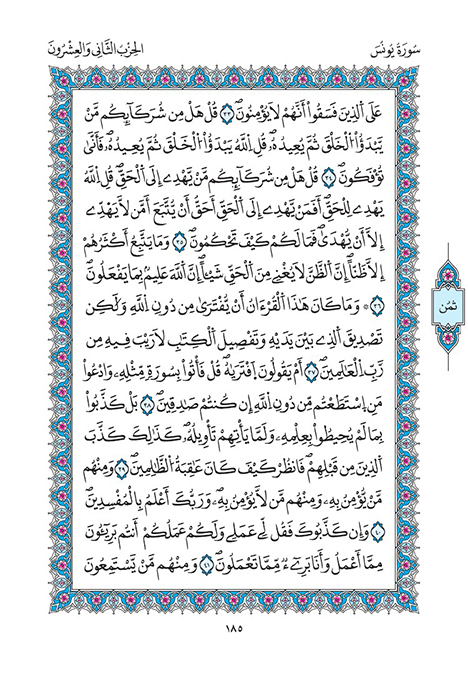 سُورَةُ يُونُسَ
الحِزْبُ الثَّانِي وَالعِشْرُونَ
عَلَى اَ۬لذِينَ فَسَقُوٓاْ أَنَّهُمْ لَا يُؤْمِنُونَۖ ٣٣ قُلْ هَلْ مِن شُرَكَآئِكُم مَّنْ
يَّبْدَؤُاْ اُ۬لْخَلْقَ ثُمَّ يُعِيدُهُۥۖ قُلِ اِ۬للَّهُ يَبْدَؤُاْ اُ۬لْخَلْقَ ثُمَّ يُعِيدُهُۥۖ فَأَنّ۪ىٰ
تُوفَكُونَۖ ٣٤ قُلْ هَلْ مِن شُرَكَآئِكُم مَّنْ يَّهْدِےٓ إِلَى اَ۬لْحَقِّۖ قُلِ اِ۬للَّهُ
يَهْدِے لِلْحَقِّۖ أَفَمَنْ يَّهْدِےٓ إِلَى اَ۬لْحَقِّ أَحَقُّ أَنْ يُّتَّبَعَ أَمَّن لَّا يَهَدِّےٓ
إِلَّآ أَنْ يُّهْد۪ىٰۖ فَمَا لَكُمْ كَيْفَ تَحْكُمُونَۖ ٣٥ وَمَا يَتَّبِعُ أَكْثَرُهُمُۥٓ
إِلَّا ظَنّاًۖ اِنَّ اَ۬لظَّنَّ لَا يُغْنِے مِنَ اَ۬لْحَقِّ شَيْـاًۖ اِنَّ اَ۬للَّهَ عَلِيمُۢ بِمَا يَفْعَلُونَۖ
٣٦ وَمَا كَانَ هَٰذَا اَ۬لْقُرْءَانُ أَنْ يُّفْتَر۪ىٰ مِن دُونِ اِ۬للَّهِ وَلَٰكِن
تَصْدِيقَ اَ۬لذِے بَيْنَ يَدَيْهِ وَتَفْصِيلَ اَ۬لْكِتَٰبِ لَا رَيْبَ فِيهِ مِن
رَّبِّ اِ۬لْعَٰلَمِينَۖ ٣٧ أَمْ يَقُولُونَ اَ۪فْتَر۪ىٰهُۖ قُلْ فَاتُواْ بِسُورَةٖ مِّثْلِهِۦ وَادْعُواْ
مَنِ اِ۪سْتَطَعْتُم مِّن دُونِ اِ۬للَّهِ إِن كُنتُمْ صَٰدِقِينَۖ ٣٨ بَلْ كَذَّبُواْ
بِمَا لَمْ يُحِيطُواْ بِعِلْمِهِۦ وَلَمَّا يَاتِهِمْ تَاوِيلُهُۥۖ كَذَٰلِكَ كَذَّبَ
اَ۬لذِينَ مِن قَبْلِهِمْۖ فَانظُرْ كَيْفَ كَانَ عَٰقِبَةُ اُ۬لظَّٰلِمِينَۖ ٣٩ وَمِنْهُم
مَّنْ يُّومِنُ بِهِۦ وَمِنْهُم مَّن لَّا يُومِنُ بِهِۦۖ وَرَبُّكَ أَعْلَمُ بِالْمُفْسِدِينَۖ
٤٠ وَإِن كَذَّبُوكَ فَقُل لِّے عَمَلِے وَلَكُمْ عَمَلُكُمُۥٓ أَنتُم بَرِيٓـُٔونَ
مِمَّآ أَعْمَلُ وَأَنَا بَرِےٓءٞ مِّمَّا تَعْمَلُونَۖ ٤١ وَمِنْهُم مَّنْ يَّسْتَمِعُونَ
ثمُن
١٨٥